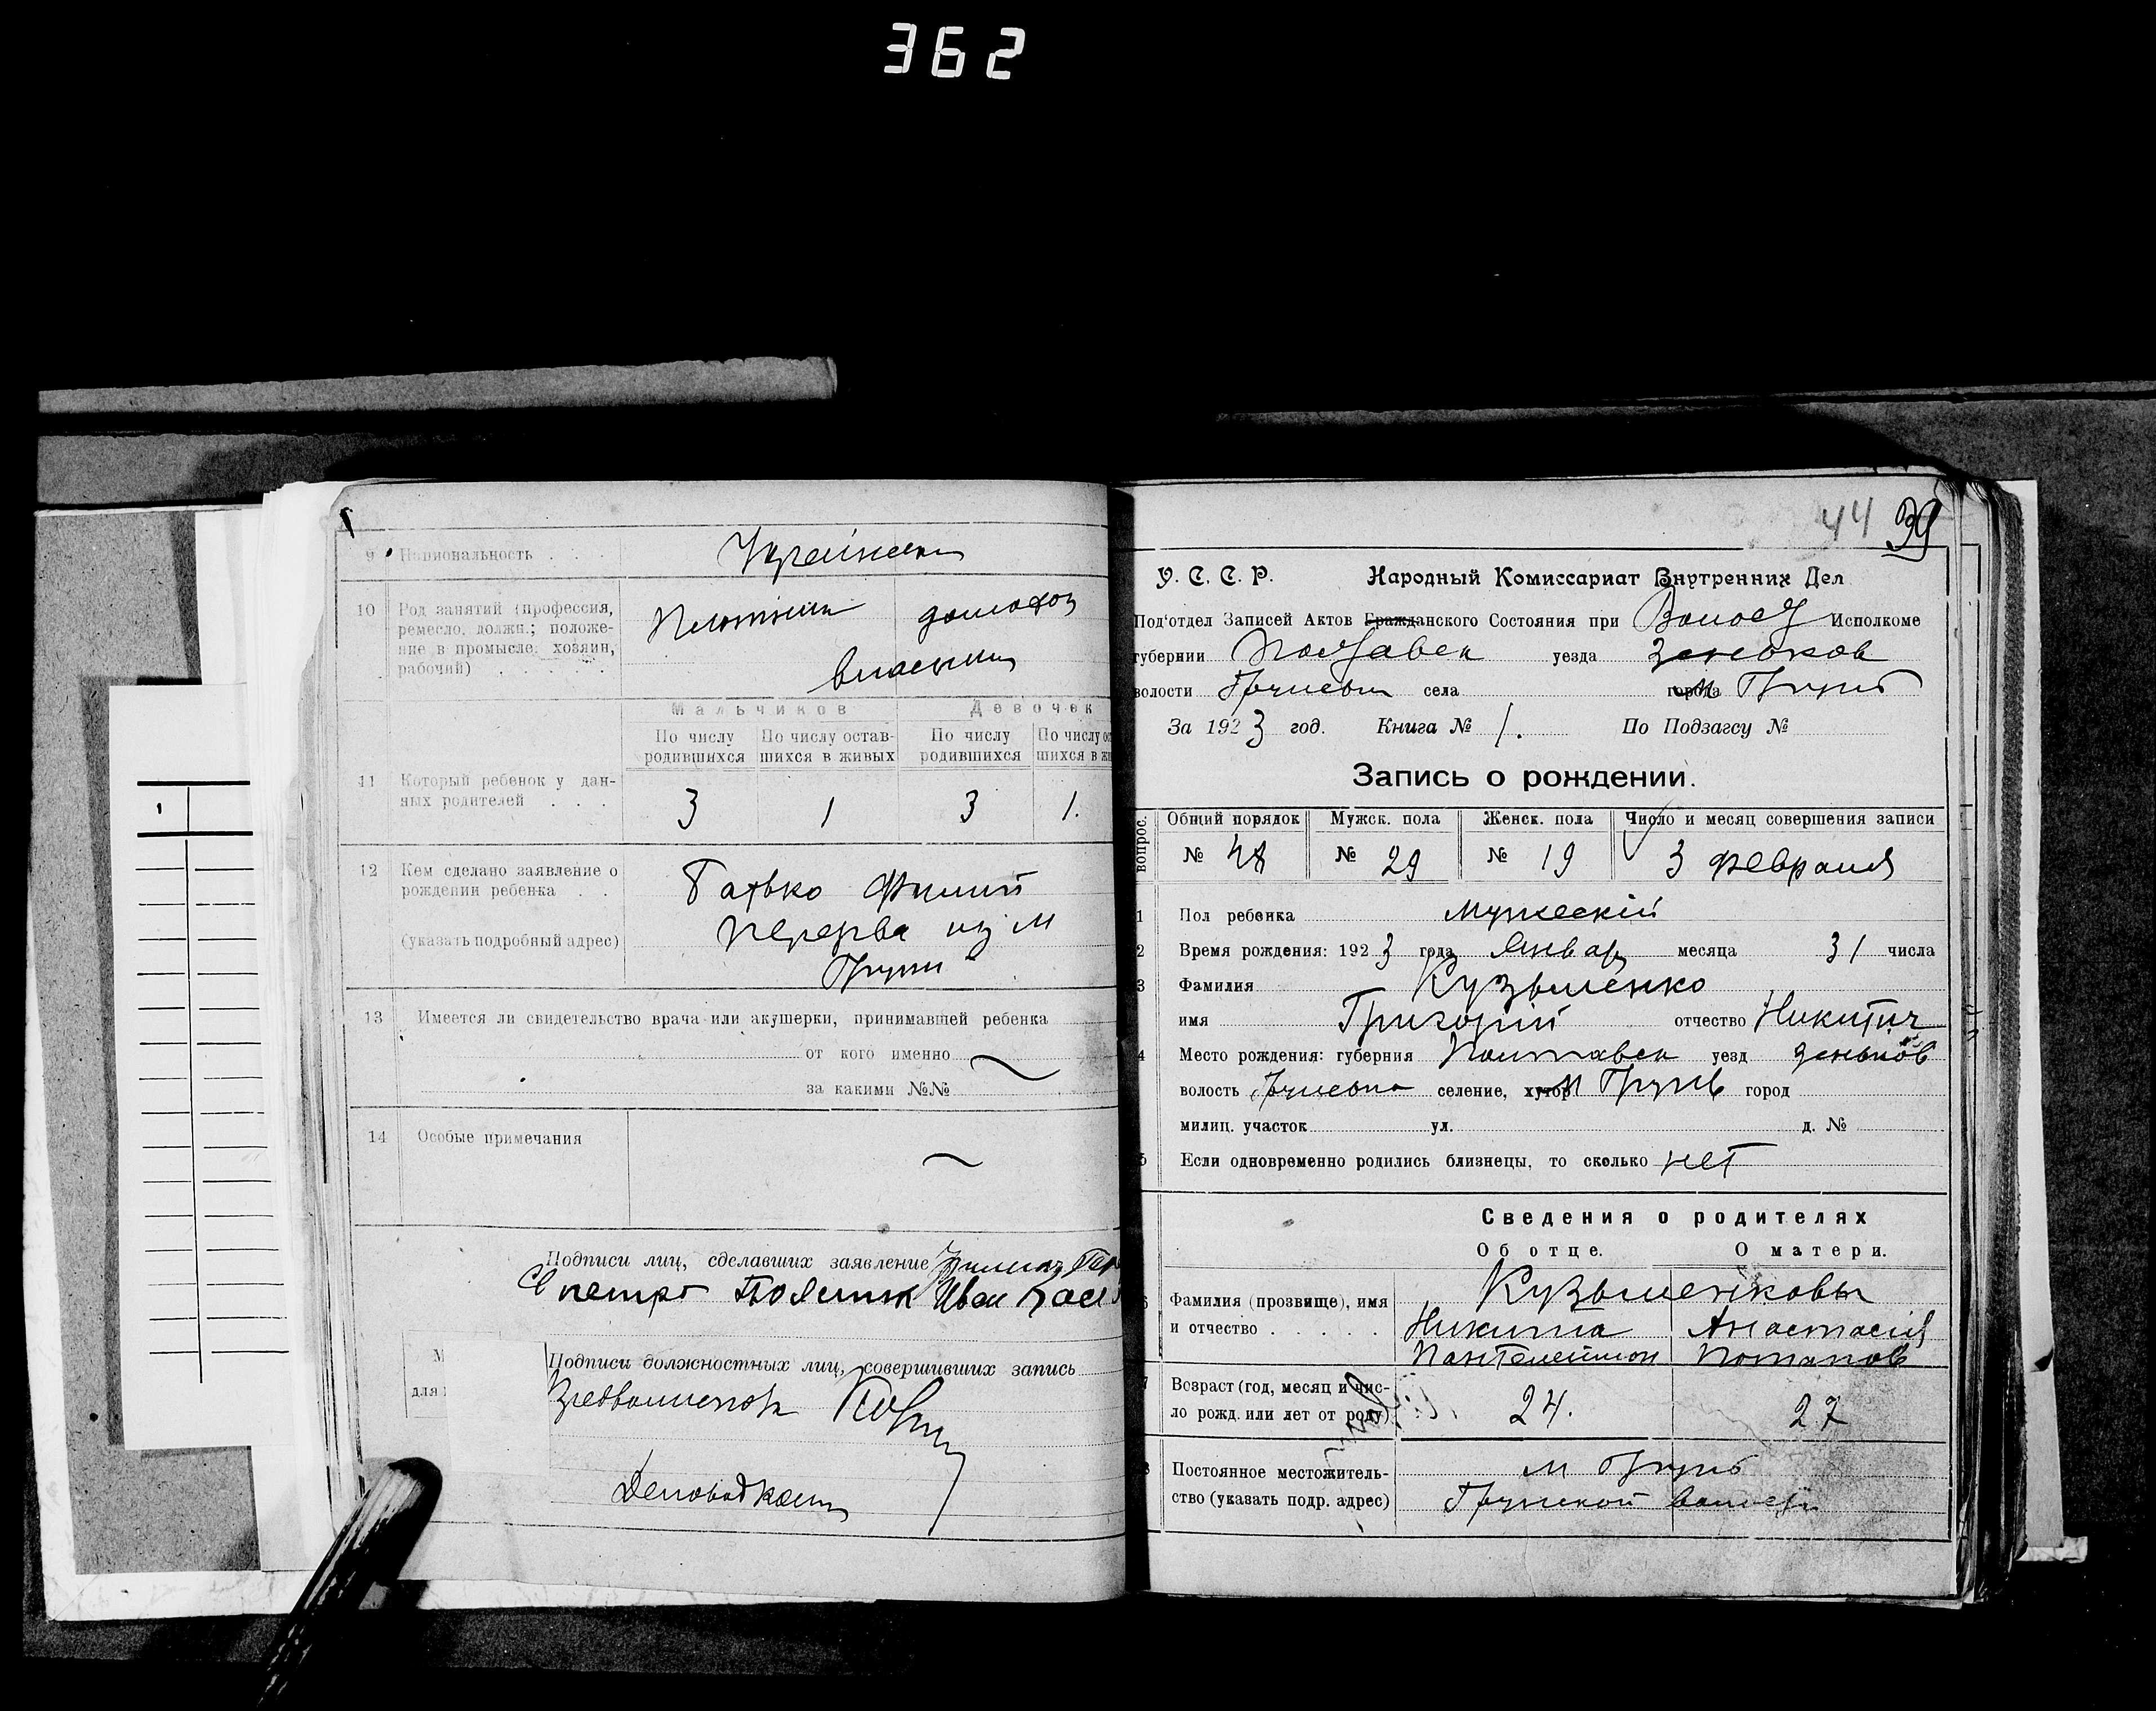 362
9 Национальность . . . Украински
10 Род занятий (профессия,
ремесло, должн.; положе-
ние в промысле: хозяин,
рабочий) . . . . .
Мальчиков Девочек
По числу родившихся По числу остав-шихся в живых По числу родившихся По числу
11 Который ребенок у дан-
ных родителей . . . 3 1 3 1.
12 Кем сделано заявление о
рождении ребенка . . Батько Филип
(указать подробный адрес) Перерва из м
Груни
13 Имеется ли свидетельство врача или акушерки, принимавшей ребенка
от кого именно
за какими №№
14 Особые примечания
Подписи лиц, сделавших заявление
Петро Иван
Подписи должностных лиц, совершивших запись
для
44 39
У. С. С. Р. Народный Комиссариат Внутренних Дел
Под'отдел Записей Актов Гражданского Состояния при Волост Исполкоме
губернии Полтавск уезда Зеньков
волости села города м Грунь
За 1923 год. Книга № 1. По Подзагсу №
Запись о рождении.
вопрос. Общий порядок Мужск. пола Женск. пола Число и месяц совершения записи
№ 48 № 29 № 19 3 февраля
1 Пол ребенка Мужеский
2 Время рождения: 1923 года Январ месяца 31 числа
3 Фамилия Кузьменко
имя Григорій отчество Никитич
4 Место рождения: губерния Полтавск уезд Зеньков
волость селение, хутор м Грунь город
милиц. участок ул. д. №
5 Если одновременно родились близнецы, то сколько нет
Сведения о родителях
Об отце. О матери.
6 Фамилия (прозвище), имя Кузьменковы
и отчество . . . . . Никита Анастасія
Пантелеймон Потапов
7 Возраст (год, месяц и чис-
ло рожд. или лет от роду) 24. 27
8 Постоянное местожитель- м Грунь
ство (указать подр. адрес) Грунской волости